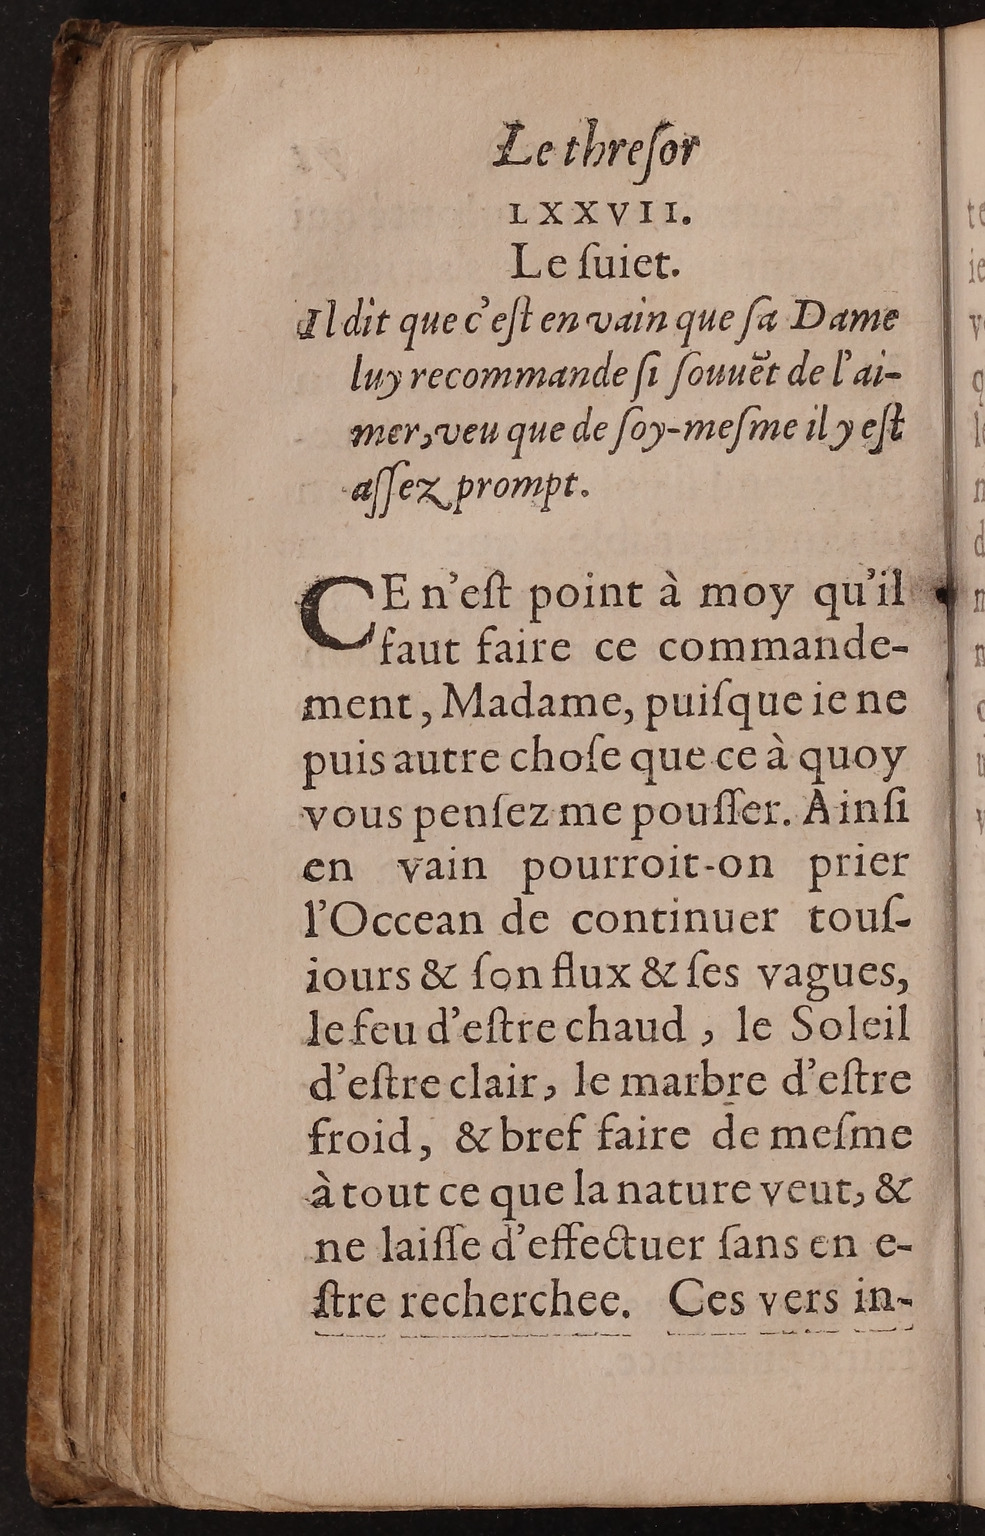 Le threſor
LXXVII.
Le ſuiet.
Il dit que c'eſt en vain que ſa Dame
luy recommande ſi ſouuēt de l'ai-
mer, veu que de ſoy-meſme il y eſt
aſſez prompt.
CE n'eſt point à moy qu'il
faut faire ce commande-
ment, Madame, puiſque ie ne
puis autre choſe que ce à quoy
vous penſez me pouſſer. Ainſi
en vain pourroit-on prier
l'Occean de continuer touſ-
iours & ſon flux & ſes vagues,
le feu d'eſtre chaud, le Soleil
d'eſtre clair, le marbre d'eſtre
froid, & bref faire de meſme
à tout ce que la nature veut, &
ne laiſſe d'effectuer ſans en e-
ſtre recherchee. Ces vers in-